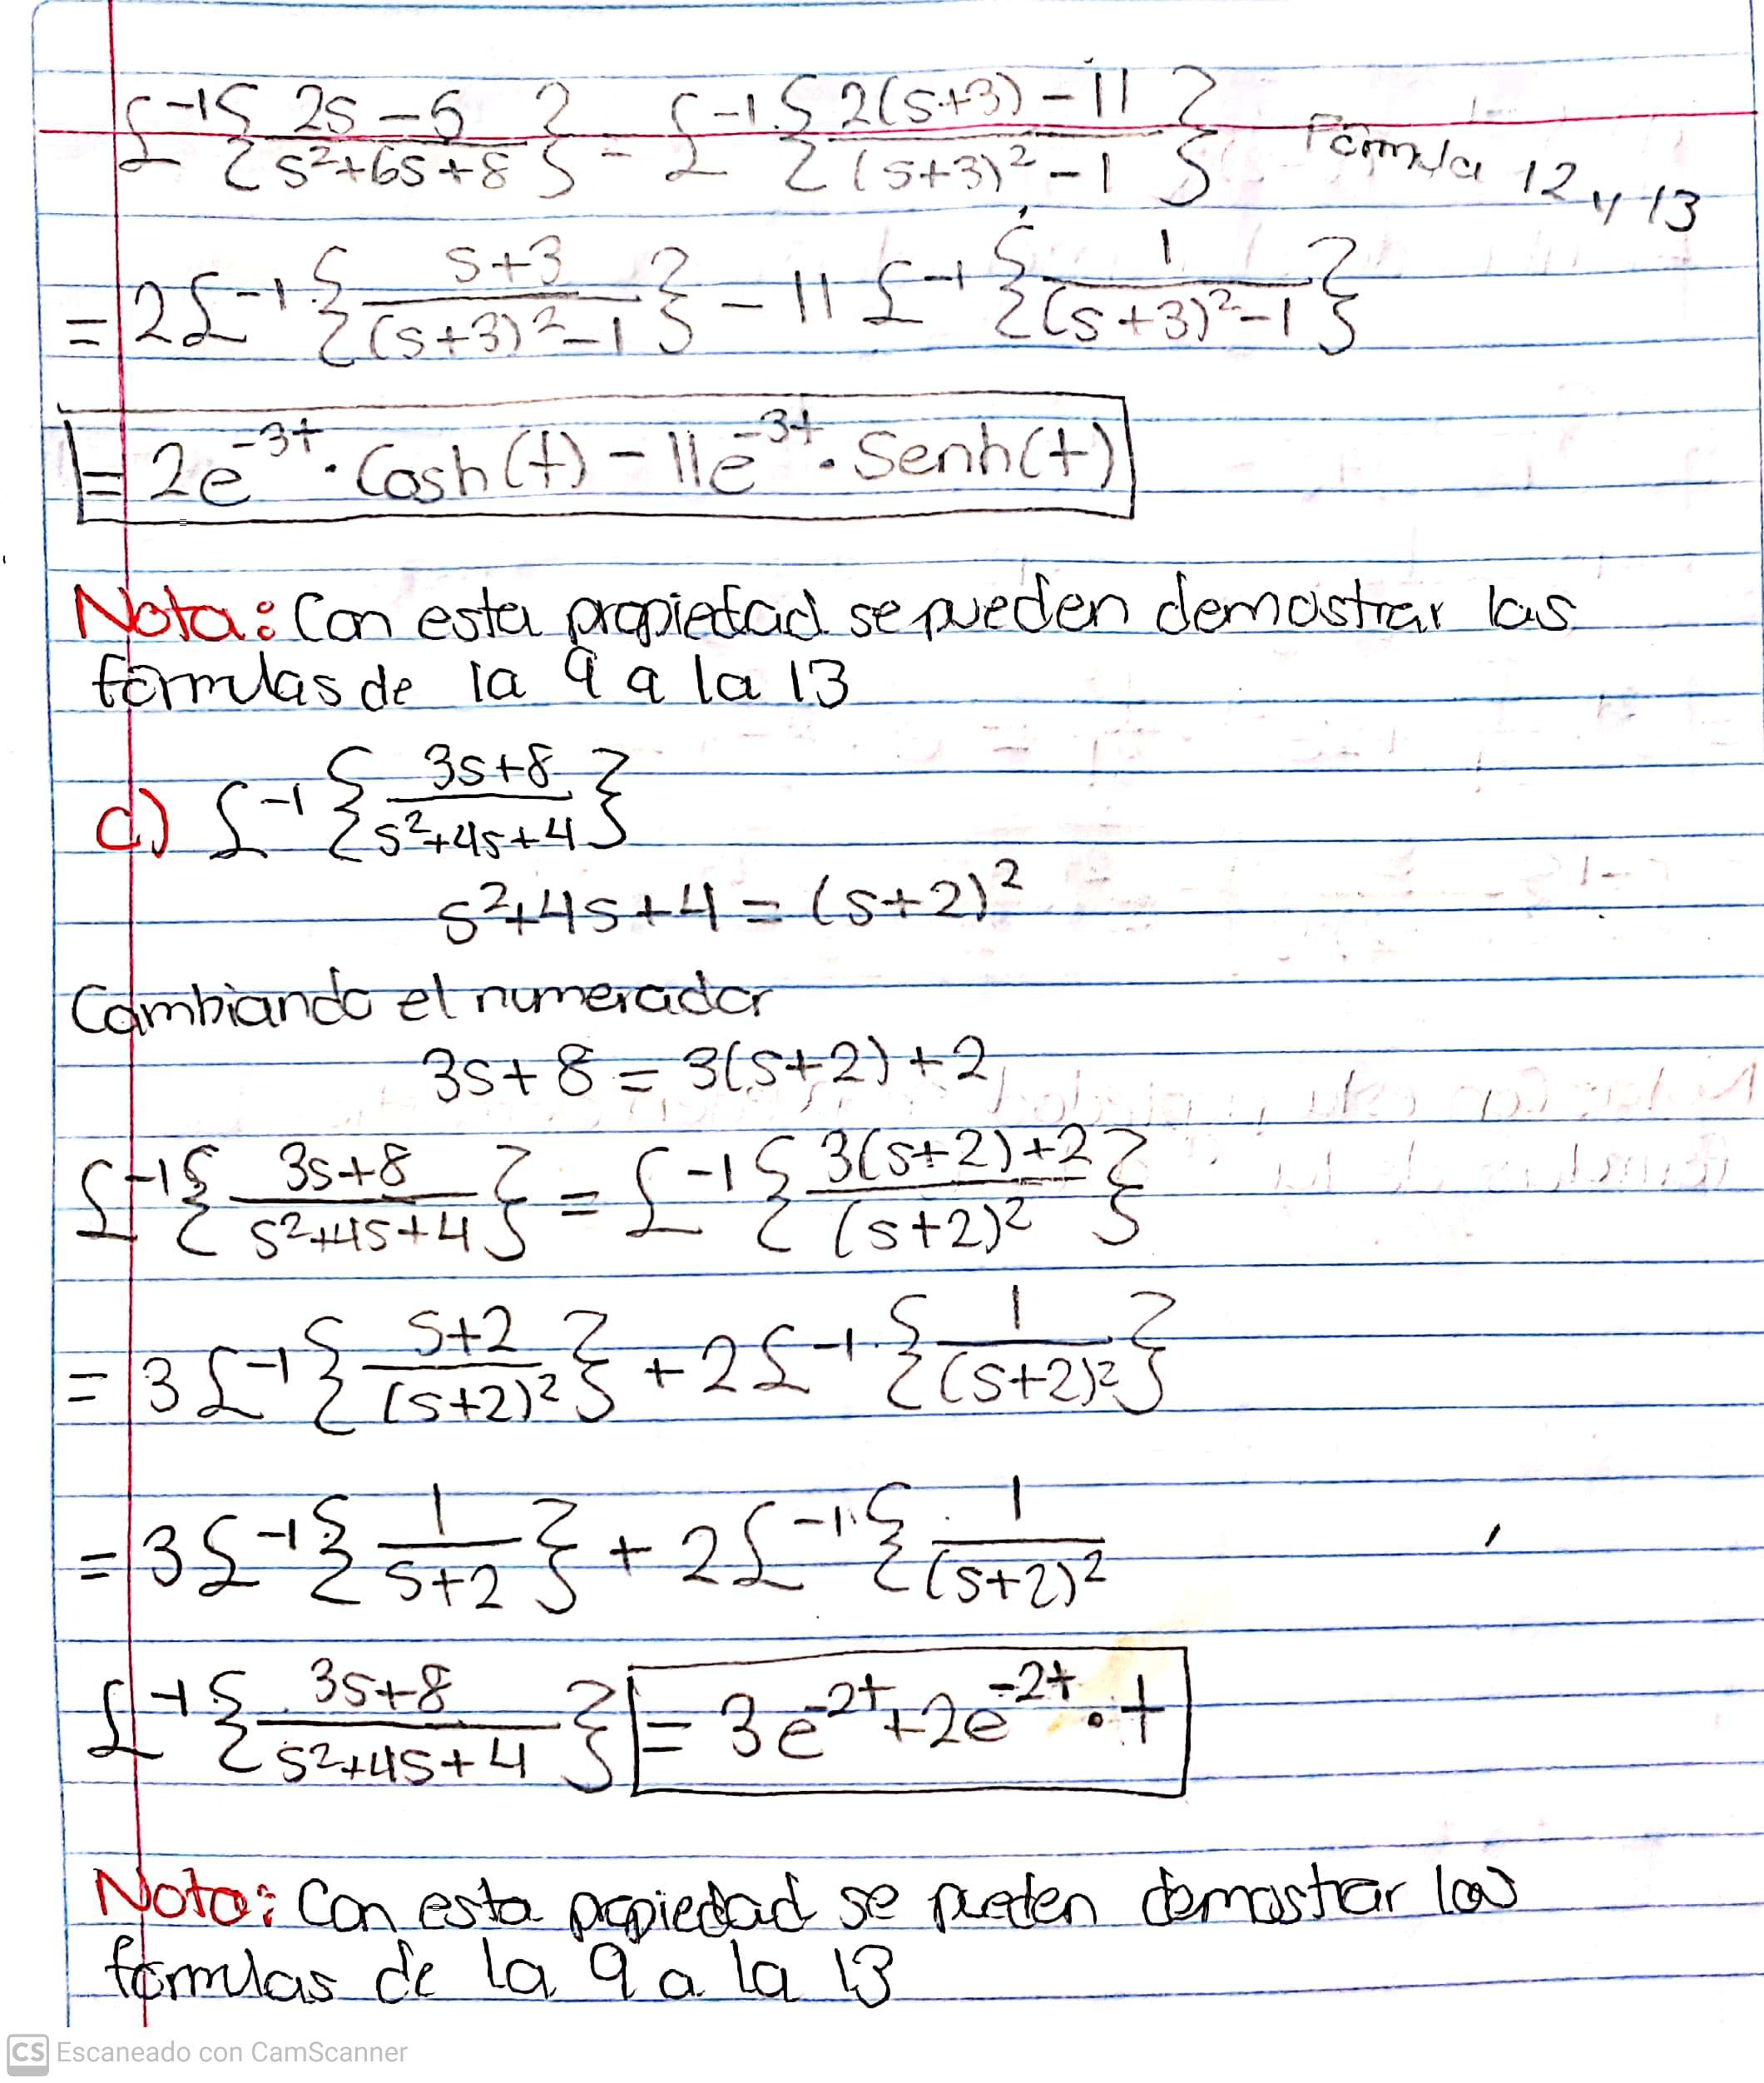 £⁻¹{ (2s-5)/(s²+6s+8) } = £⁻¹{ (2(s+3)-11)/((s+3)²-1) } Fórmula 12 y 13
= 2£⁻¹{ (s+3)/((s+3)²-1) } - 11 £⁻¹{ 1/((s+3)²-1) }
= 2e⁻³ᵗ · Cosh(t) - 11e⁻³ᵗ · Senh(t)
Nota: Con esta propiedad se pueden demostrar las
fórmulas de la 9 a la 13
c) £⁻¹{ (3s+8)/(s²+4s+4) }
s²+4s+4 = (s+2)²
Cambiando el numerador
3s+8 = 3(s+2)+2
£⁻¹{ (3s+8)/(s²+4s+4) } = £⁻¹{ (3(s+2)+2)/(s+2)² }
= 3£⁻¹{ (s+2)/(s+2)² } + 2£⁻¹{ 1/(s+2)² }
= 3£⁻¹{ 1/(s+2) } + 2£⁻¹{ 1/(s+2)²
£⁻¹{ (3s+8)/(s²+4s+4) } = 3e⁻²ᵗ + 2e⁻²ᵗ · t
Nota: Con esta propiedad se pueden demostrar las
fórmulas de la 9 a la 13
CS Escaneado con CamScanner